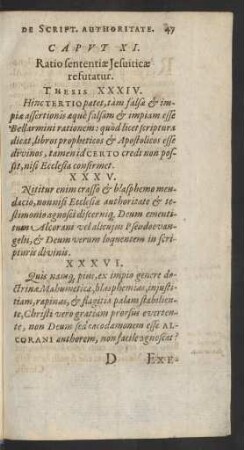 DE SCRIPT. AUTHORITATE. 47
CAPVT XI.
Ratio sententiæ Jesuiticæ
refutatur.
THESIS XXXIV.
Hinc TERTIO patet, tàm falsã & im-
piã assertionis æquè falsam & impiam esse
Bellarmini rationem: quòd licet scriptura
dicat, libros propheticos & Apostolicos esse
divinos, tamen id CERTO credi non pos-
sit, nisi Ecclesia confirmet.
XXXV.
Nititur enim crasso & blasphemo men-
dacio, non nisi Ecclesiæ authoritate & te-
stimonio agnosci discerniq, Deum ementi-
tum Alcorani vel alicujus Pseudoevan-
gelii, & Deum verum loquentem in scri-
pturis divinis.
XXXVI.
Quis namq, pius, ex impio genere do-
ctrinæ Mahumetica, blasphemias, injusti-
tiam, rapinas, & flagitia palam stabilien-
te, Christi vero gratiam prorsus everten-
te, non Deum sed cacodæmonem esse AL-
CORANI authorem, non facile agnoscat?
D EXE-